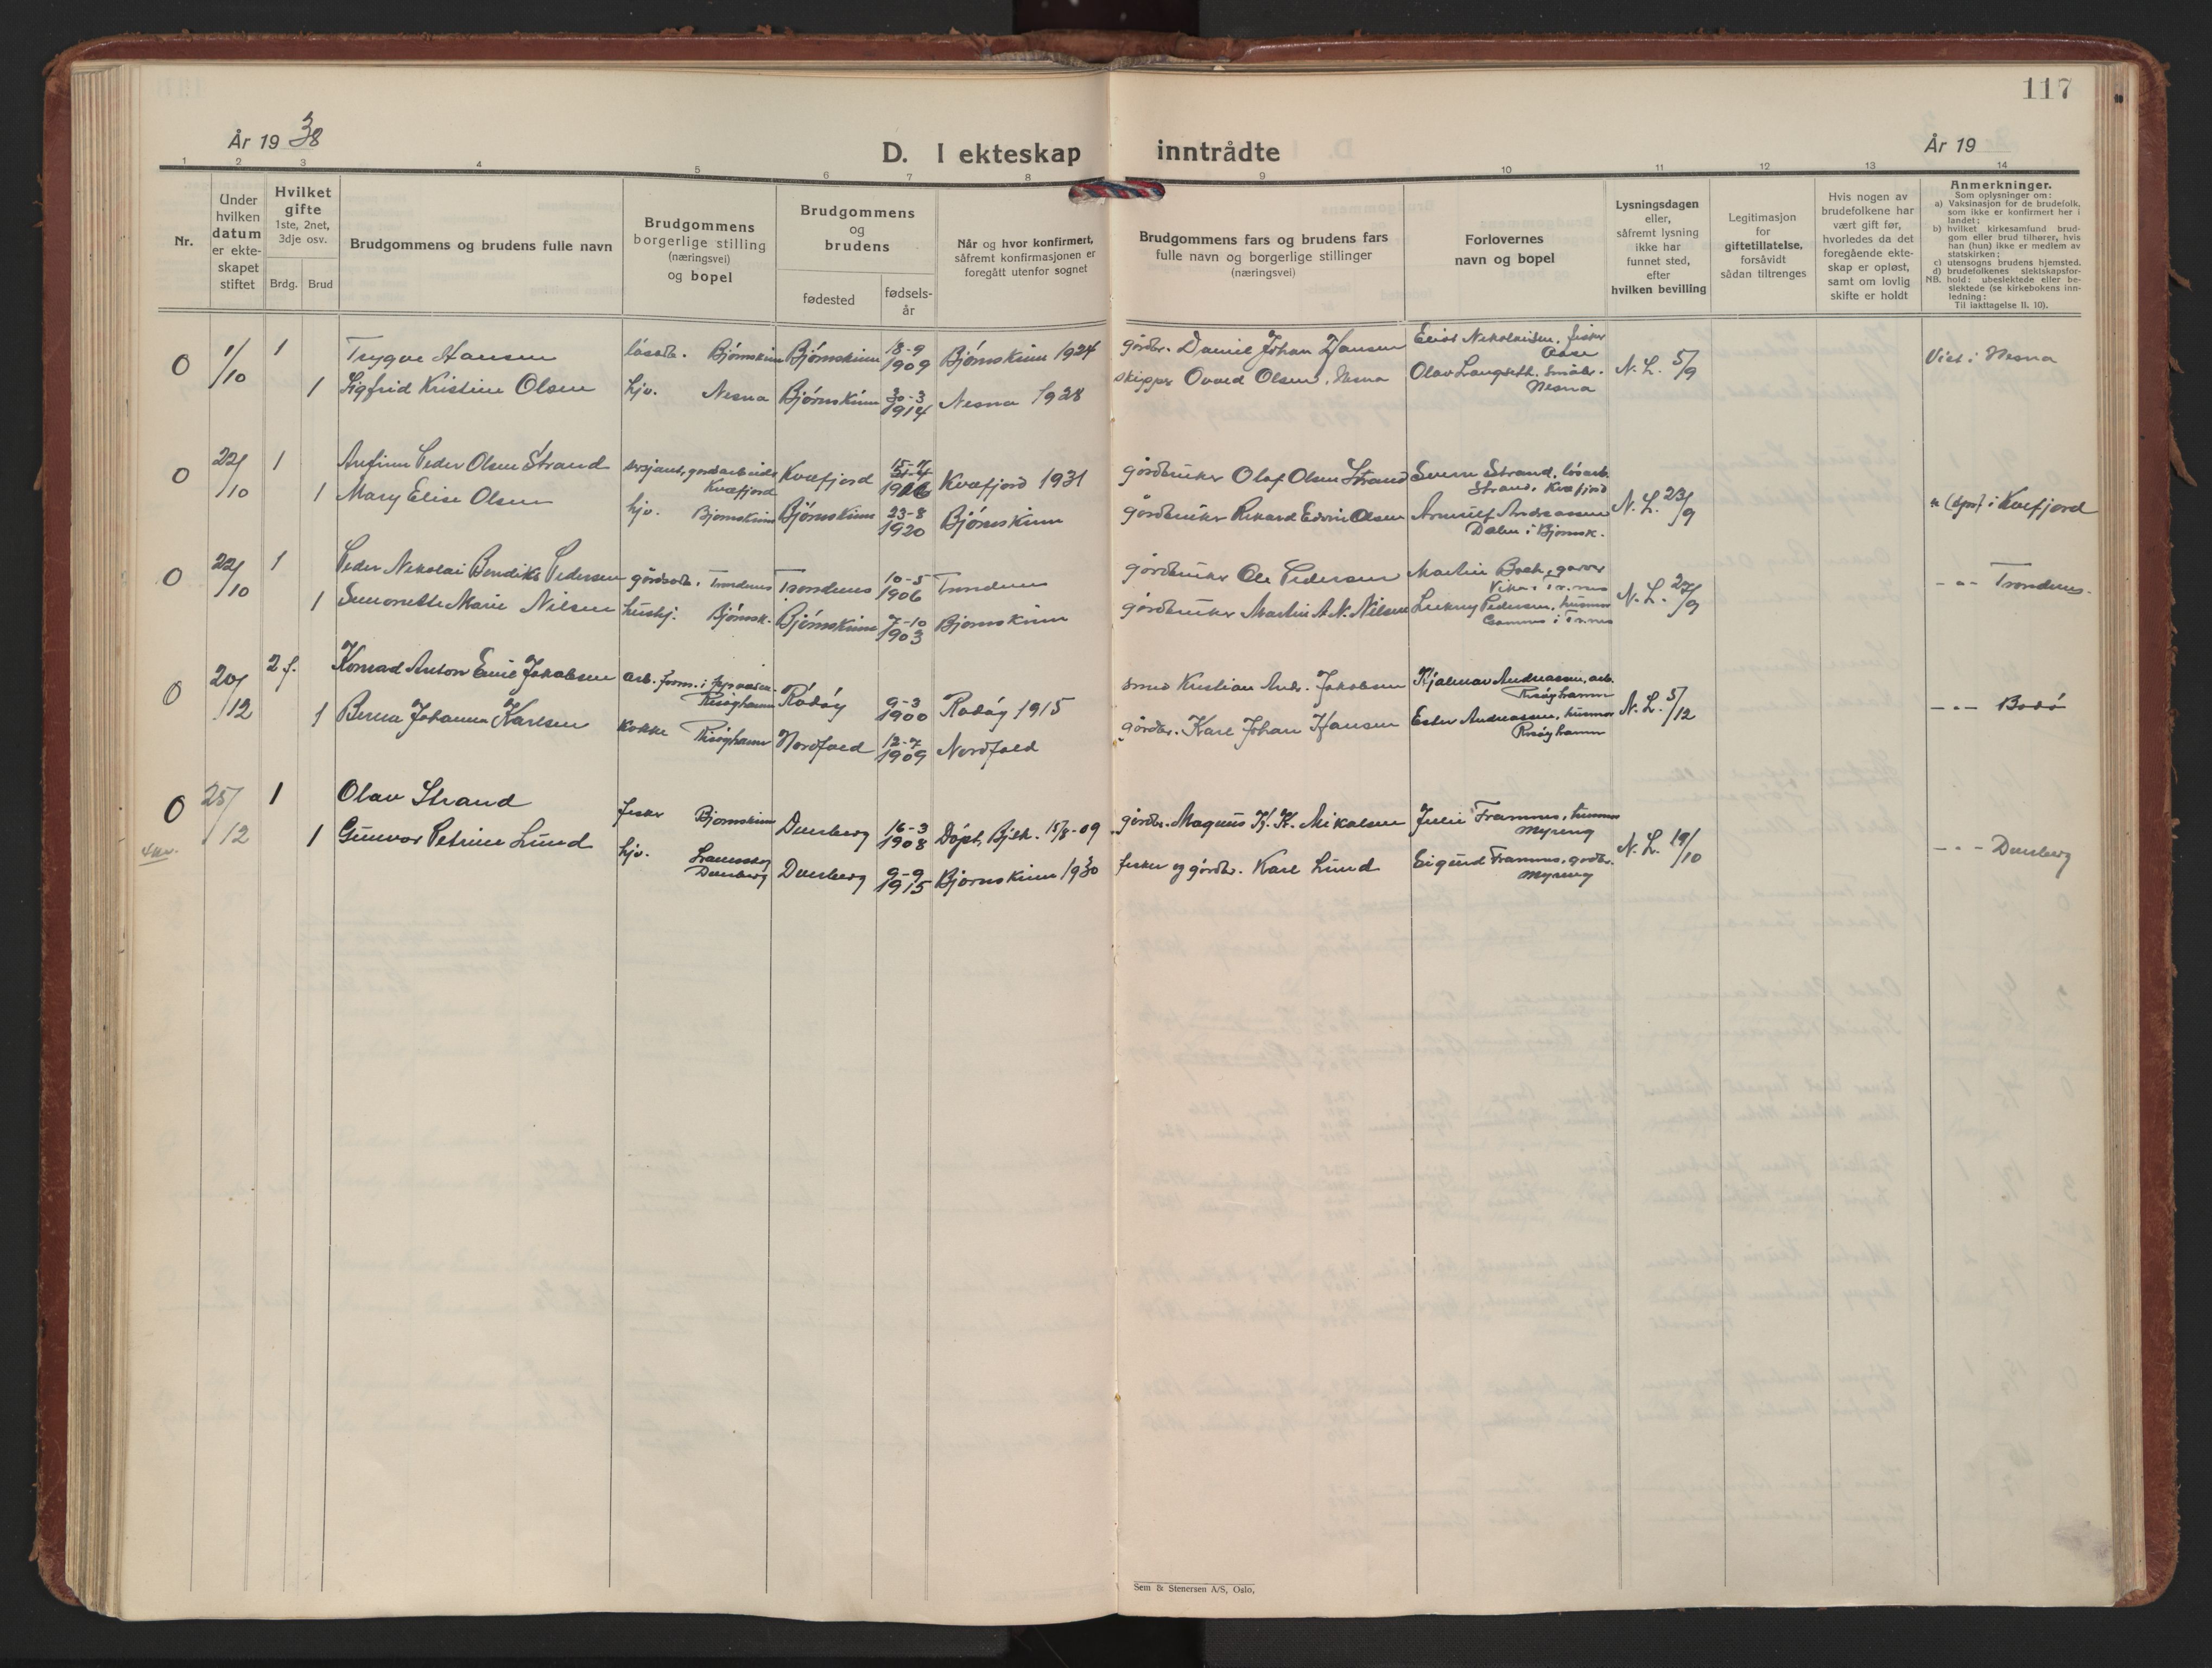 117
År 19 38
D. I ekteskap inntrådte
År 19
1 2 3 4 5 6 7 8 9 10 11 12 13 14
Nr.
Under
hvilken
datum
er ekte-
skapet
stiftet
Hvilket
gifte
1ste, 2net,
3dje osv.
Brdg. Brud
Brudgommens og brudens fulle navn
Brudgommens
borgerlige stilling
(næringsvei)
og bopel
Brudgommens
og
brudens
fødested
fødsels-
år
Når og hvor konfirmert,
såfremt konfirmasjonen er
foregått utenfor sognet
Brudgommens fars og brudens fars
fulle navn og borgerlige stillinger
(næringsvei)
Forlovernes
navn og bopel
Lysningsdagen
eller,
såfremt lysning
ikke har
funnet sted,
efter
hvilken bevilling
Legitimasjon
for
giftetillatelse,
forsåvidt
sådan tiltrenges
Hvis nogen av
brudefolkene har
vært gift før,
hvorledes da det
foregående ekte-
skap er opløst,
samt om lovlig
skifte er holdt
Anmerkninger.
Som oplysninger om:
a) Vaksinasjon for de brudefolk,
som ikke er konfirmert her i
landet;
b) hvilket kirkesamfund brud-
gom eller brud tilhører, hvis
han (hun) ikke er medlem av
statskirken;
c) utensogns brudens hjemsted.
d) brudefolkenes slektskapsfor-
hold: ubeslektede eller be-
slektede (se kirkebokens inn-
ledning:
NB. Til iakttagelse II. 10).
0 1/10 1 Trygve Hansen løsarb. Bjørnskinn Bjørnskinn 18-9 1909 Bjørnskinn 1924 gårdbr. Daniel Johan Hansen Nikolaisen, fisker N. L. 5/9 Viet i Nesna
1 Sigfrid Kristine Olsen hjv. Nesna Bjørnskinn 30-3 1914 Nesna 1928 skipper Olsen, Nesna Olav Langseth, småbr. Nesna
0 22/10 1 Arnfinn Peder Olsen Strand Kvæfjord Kvæfjord Kvæfjord 1931 gårdbruker Olaf Olsen Strand Sverre Strand, løsarb. Strand, Kvæfjord N. L. 23/9 i Kvæfjord
1 Mary Elise Olsen hjv. Bjørnskinn Bjørnskinn 23-8 1920 Bjørnskinn gårdbruker Rikard Edvin Olsen Arnulf Andreassen i Bjørnsk.
0 22/10 1 Peder Nikolai Bendiks Pedersen gårdsarb. Trondenes Trondenes 10-5 1906 Trondenes gårdbruker Ole Pedersen Martin N. L. 27/9 - " - Trondenes
1 Simonette Marie Nilsen hushj. Bjørnsk. Bjørnskinn 7-10 1903 Bjørnskinn gårdbruker Martin A. N. Nilsen Pedersen, husmor
0 20/12 2 f. Konrad Anton Emil Jakobsen arb. form. i Risøyhamn Rødøy 9-3 1900 Rødøy 1915 smed Kristian Andr. Jakobsen Hjalmar Andreassen, arb. Risøyhamn N. L. 5/12 - " - Bodø
1 Berna Johanna Karlsen kokke Risøyhamn Nordfold 12-7 1909 Nordfold gårdbr. Karl Johan Hansen Ester Andreassen, husmor Risøyhamn
0 25/12 1 Olav Strand fisker Bjørnskinn Dverberg 16-3 1908 Døpt, Bjsk. 15/8-09 gårdbr. Magnus K. K. Mikalsen Julie Framnes, husmor Myreng N. L. 19/10 - " - Dverberg
1 Gunvor Petrine Lund hjv. Dverberg Dverberg 9-9 1915 Bjørnskinn 1930 fisker og gårdbr. Karl Lund Framnes, gårdbr. Myreng
Sem & Stenersen A/S, Oslo,